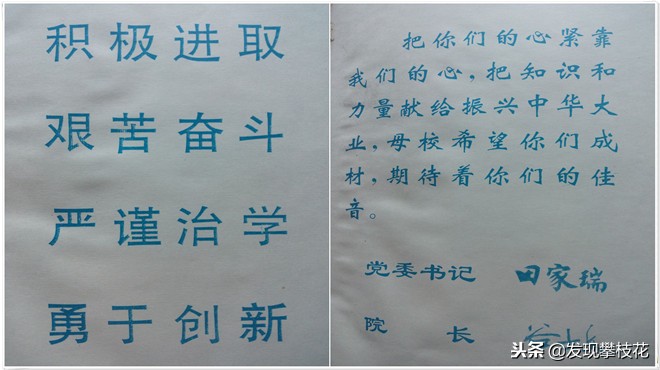 积极进取
艰苦奋斗
严谨治学
勇于创新
把你们的心紧靠
我们的心,把知识和
力量献给振兴中华大
业,母校希望你们成
材,期待着你们的佳
音。
党委书记 田家瑞
院长
头条@发现攀枝花